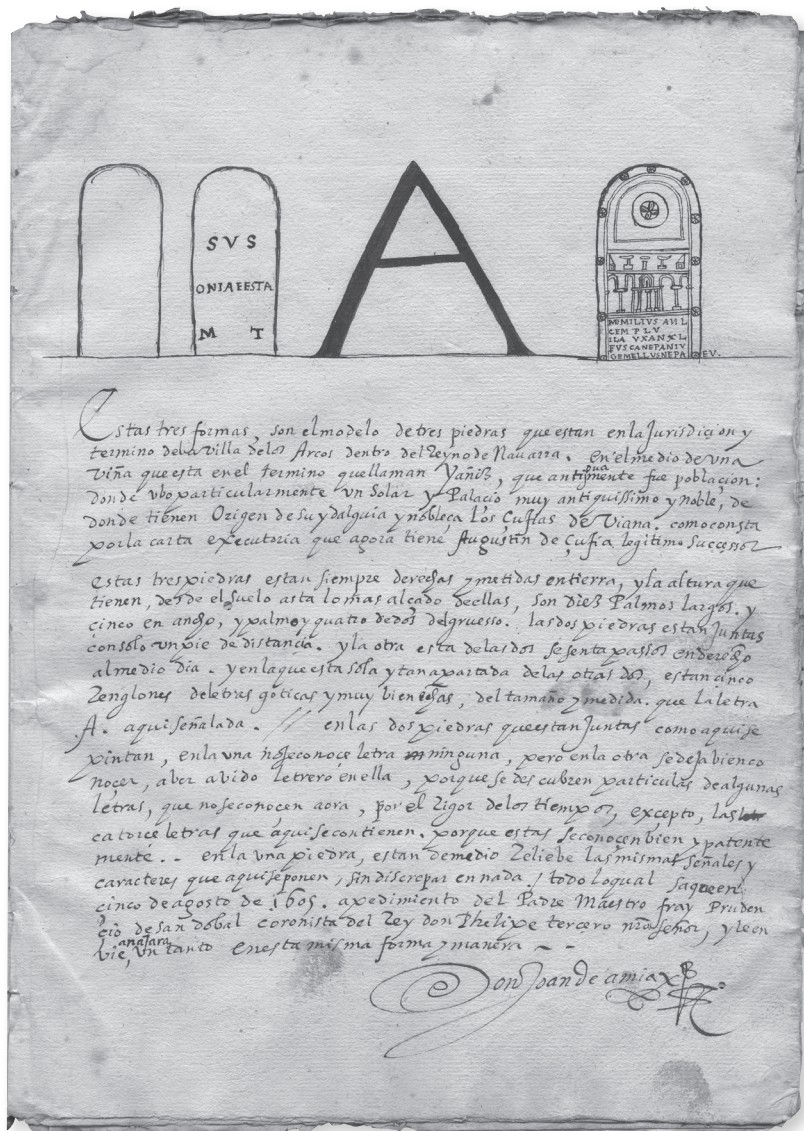 SVS
ONIAEESTA
M T
A
MEMILIVS AVIL
GEMPLV
ILA VXANXL
FVSCANEPANIV
GEMELLVSNEPA EV.
Estas tres formas, son el modelo de tres piedras que estan en la Jurisdicion y
termino de la Villa de los Arcos dentro del Reyno de Nauarra. En el medio de una
viña que esta en el termino que llaman Yañiz, que antiguamente fue poblaçion:
donde vbo particularmente un Solar y Palaçio muy antiquissimo y noble, de
donde tienen Origen de su ydalguia y nobleça los Cufias de Viana. como consta
por la carta executoria que agora tiene Augustin de Çufia legitimo Successor
estas tres piedras estan siempre derechas y metidas en tierra, y la altura que
tienen, desde el suelo asta lo mas alçado de ellas, son diez Palmos largos. y
cinco en ancho, y palmo y quatro dedos del gruesso. las dos piedras estan Juntas
con solo un pie de distancia. y la otra esta de las dos sesenta passos en derecho
al medio dia. y en la que esta sola y tan apartada de las otras dos, estan cinco
Renglones de letras goticas y muy bien echas, del tamaño y medida. que la letra
A. aqui señalada. // en las dos piedras que estan Juntas como aqui se
pintan, en la una no se conoce letra ninguna, pero en la otra se deja bien co
noçer, aber abido letrero en ella, porque se descubren particulas de algunas
letras, que no se conocen aora, por el Rigor de los tiempos, excepto, las
catorce letras que aqui se contienen. porque estas se conocen bien y patente
mente. . en la una piedra, estan de medio Reliebe las mismas señales y
caracteres que aqui se ponen, sin discrepar en nada / todo lo qual saque en
cinco de agosto de 1605. a pedimiento del Padre Maestro fray Pruden
cio de san dobal coronista del Rey don Phelipe tercero nro señor, y le en
vie, a najara un tanto en esta misma forma y manera ~ -
Don Joan de amiax